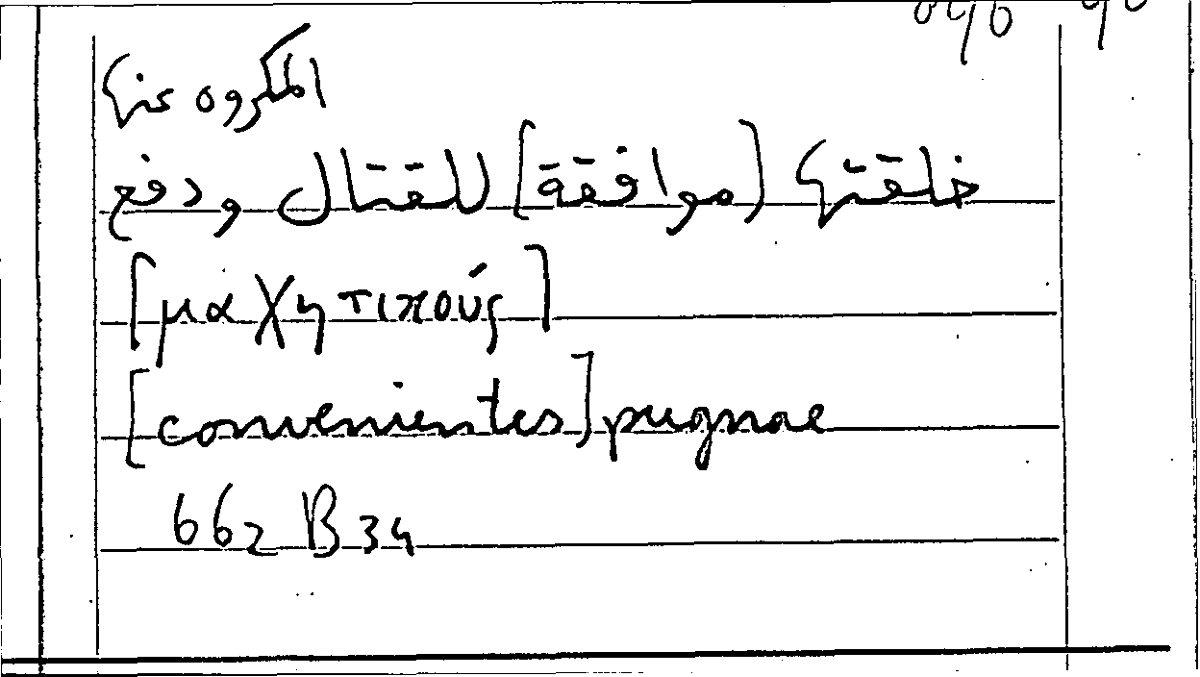 المكروه عنها
خلقتها [موافقة] للقتال ودفع
[μαχητικούς]
[convenientes] pugnae
662 B 34